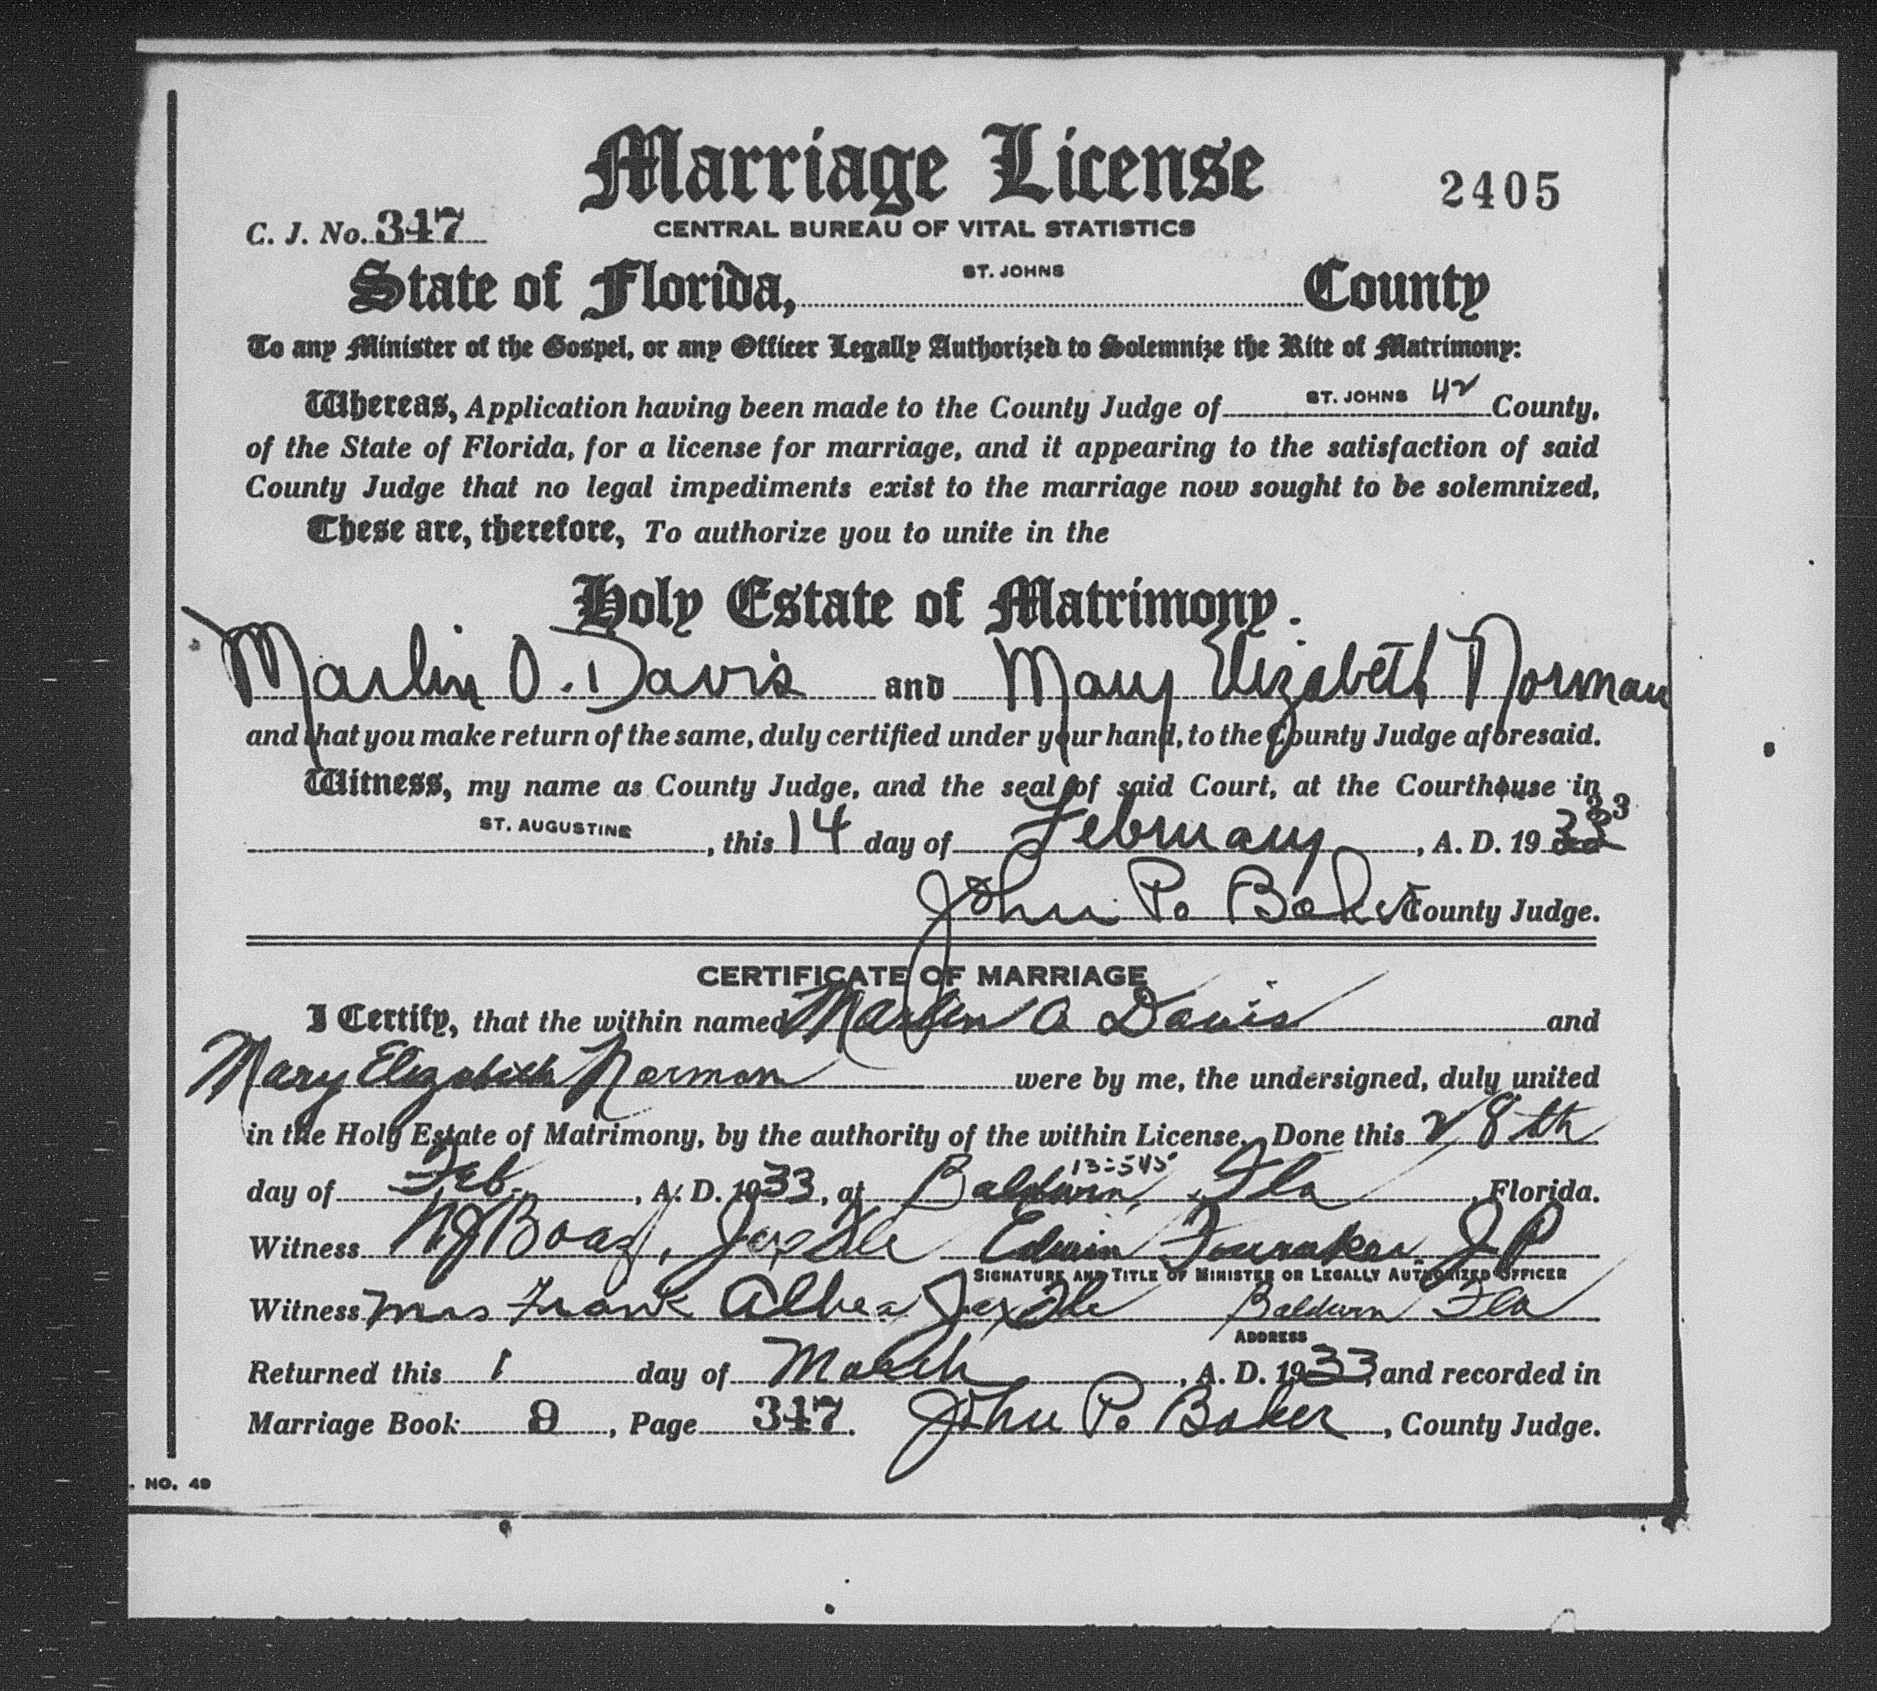 Marriage License
2405
C. J. No. 347
CENTRAL BUREAU OF VITAL STATISTICS
State of Florida, ST. JOHNS County
To any Minister of the Gospel, or any Officer Legally Authorized to Solemnize the Rite of Matrimony:
Whereas, Application having been made to the County Judge of ST. JOHNS 42 County,
of the State of Florida, for a license for marriage, and it appearing to the satisfaction of said
County Judge that no legal impediments exist to the marriage now sought to be solemnized,
These are, therefore, To authorize you to unite in the
Holy Estate of Matrimony.
Marlin O. Davis and Mary Elizabeth Norman
and that you make return of the same, duly certified under your hand, to the County Judge aforesaid.
Witness, my name as County Judge, and the seal of said Court, at the Courthouse in
ST. AUGUSTINE, this 14 day of February, A. D. 1933
John P. Baker County Judge.
CERTIFICATE OF MARRIAGE
I Certify, that the within named Marlin O Davis and
Mary Elizabeth Norman were by me, the undersigned, duly united
in the Holy Estate of Matrimony, by the authority of the within License. Done this 28th
day of Feb, A. D. 1933, at Baldwin, Fla, Florida.
13-545
Witness N J Boaz, Jax Fla Edwin Fouraker J P
SIGNATURE AND TITLE OF MINISTER OR LEGALLY AUTHORIZED OFFICER
Witness Mrs Frank Albea Jax Fla Baldwin Fla
ADDRESS
Returned this 1 day of March, A. D. 1933, and recorded in
Marriage Book 9, Page 347. John P. Baker, County Judge.
. NO. 49